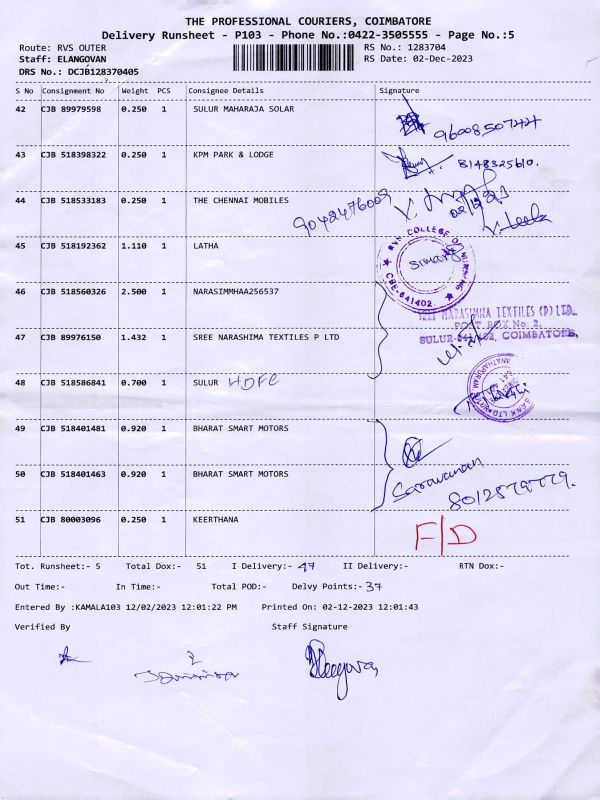 THE PROFESSIONAL COURIERS, COIMBATORE
Delivery Runsheet - P103 - Phone No.:0422-3505555 - Page No.:5
Route: RVS OUTER RS No.: 1283704
Staff: ELANGOVAN RS Date: 02-Dec-2023
DRS No.: DCJB128370405
S No Consignment No Weight PCS Consignee Details Signature
42 CJB 89979598 0.250 1 SULUR MAHARAJA SOLAR
43 CJB 518398322 0.250 1 KPM PARK & LODGE 8148325610.
44 CJB 518533183 0.250 1 THE CHENNAI MOBILES 9042476009
45 CJB 518192362 1.110 1 LATHA
RVS COLLEGE OF NURSING
CBE-641402.
46 CJB 518560326 2.500 1 NARASIMMHAA256537
SREE NARASHIMA TEXTILES (P) LTD.
POST BOX No. 2,
47 CJB 89976150 1.432 1 SREE NARASHIMA TEXTILES P LTD
SULUR-641 402, COIMBATORE,
48 CJB 518586841 0.700 1 SULUR HDFC
49 CJB 518401481 0.920 1 BHARAT SMART MOTORS
50 CJB 518401463 0.920 1 BHARAT SMART MOTORS
Saravanan
8012579779.
51 CJB 80003096 0.250 1 KEERTHANA F/D
Tot. Runsheet:- 5 Total Dox:- 51 I Delivery:- 47 II Delivery:- RTN Dox:-
Out Time:- In Time:- Total POD:- Delvy Points:- 37
Entered By :KAMALA103 12/02/2023 12:01:22 PM Printed On: 02-12-2023 12:01:43
Verified By Staff Signature